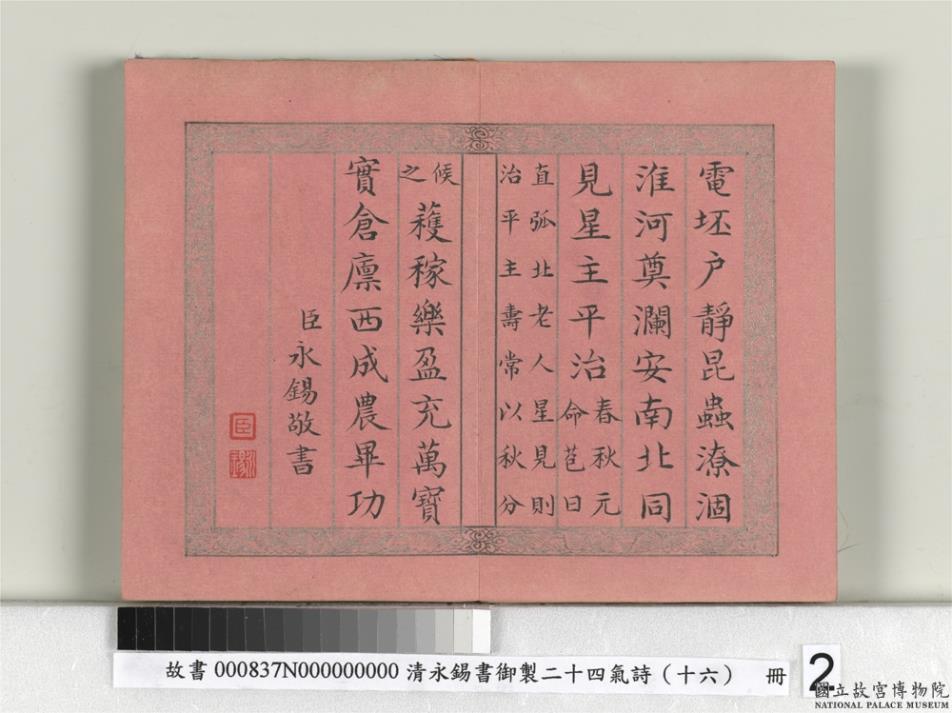 電坯户靜昆蟲潦涸
淮河奠瀾安南北同
見星主平治春秋元命苞曰
直弧北老人星見則
治平主壽常以秋分
候之
蒦稼樂盈充萬寶
實倉廪西成農畢功
臣永錫敬書
臣
永錫
故書 000837N000000000 清永錫書御製二十四氣詩（十六） 冊
2
國立故宮博物院
NATIONAL PALACE MUSEUM